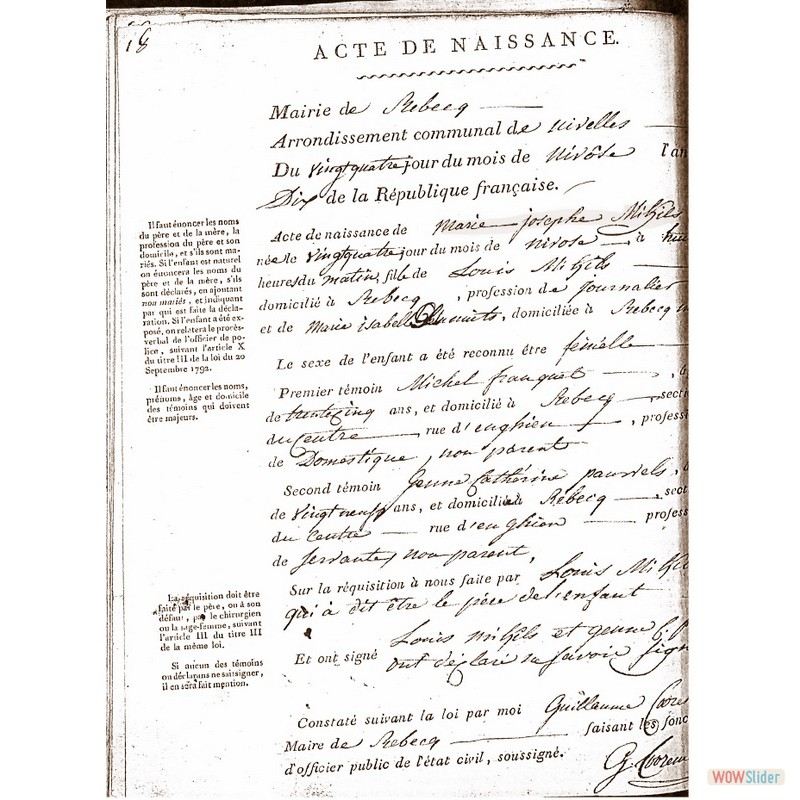 18
ACTE DE NAISSANCE.
Mairie de Rebecq
Arrondissement communal de nivelles
Du vingtquatre jour du mois de nivôse l'an
Dix de la République française.
Acte de naissance de Marie josephe Mikils
née le vingtquatre jour du mois de nivose à
heures du matin, fille de Louis Mikils
domicilié à Rebecq, profession de journalier
et de Marie isabelle domiciliée à Rebecq
Le sexe de l'enfant a été reconnu être fémelle
Premier témoin Michel franquet
de ans, et domicilié à Rebecq secti
du Centre rue d'enghien, professi
de Domestique, non parent
Second témoin Jenne Cathérine pauwels,
de vingt neuf ans, et domicilié à Rebecq sect
du Centre rue d'enghien profess
de servante, non parent,
Sur la réquisition à nous faite par Louis
qui à dit être le père de l'enfant
Et ont signé Louis mikils et jenne C. P
ont déclaré ne savoir sign
Constaté suivant la loi par moi Guillaume
Maire de Rebecq faisant les fonc
d'officier public de l'état civil, soussigné.
G.
Il faut énoncer les noms
du père et de la mère, la
profession du père et son
domicile, et s'ils sont ma-
riés. Si l'enfant est naturel
on énoncera les noms du
père et de la mère, s'ils
sont déclarés, en ajoutant
non mariés, et indiquant
par qui est faite la décla-
ration. Si l'enfant a été ex-
posé, on relatera le procès-
verbal de l'officier de po-
lice, suivant l'article X
du titre III de la loi du 20
Septembre 1792.
Il faut énoncer les noms,
prénoms, âge et domicile
des témoins qui doivent
être majeurs.
La réquisition doit être
faite par le père, ou à son
défaut, par le chirurgien
ou la sage-femme, suivant
l'article III du titre III
de la même loi.
Si aucun des témoins
ou déclarans ne sait signer,
il en sera fait mention.
WOWSlider